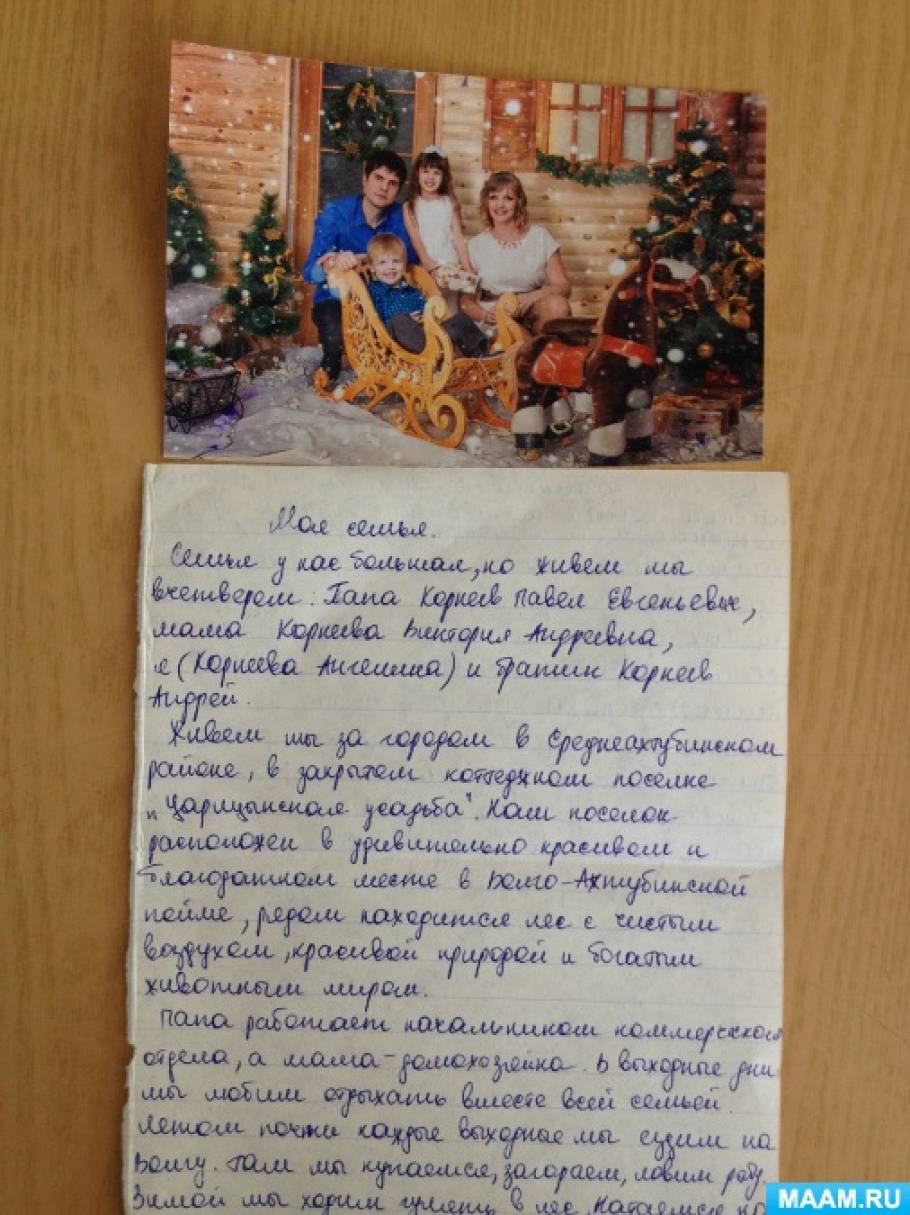 Моя семья.
Семья у нас большая, но живем мы
вчетвером: Папа Корнеев Павел Евгеньевич,
мама Корнеева Виктория Андреевна,
я (Корнеева Ангелина) и братик Корнеев
Андрей.
Живем мы за городом в Среднеахтубинском
районе, в закрытом коттеджном поселке
"Царицынская усадьба". Наш поселок
расположен в удивительно красивом и
благодатном месте в Волго-Ахтубинской
пойме, рядом находится лес с чистым
воздухом, красивой природой и богатым
животным миром.
Папа работает начальником коммерческого
отдела, а мама - домохозяйка. В выходные дни
мы любим отдыхать вместе всей семьей.
Летом почти каждые выходные мы ездим на
Волгу. Там мы купаемся, загораем, ловим рыбу.
Зимой мы ходим гулять в лес, катаемся на
MAAM.RU